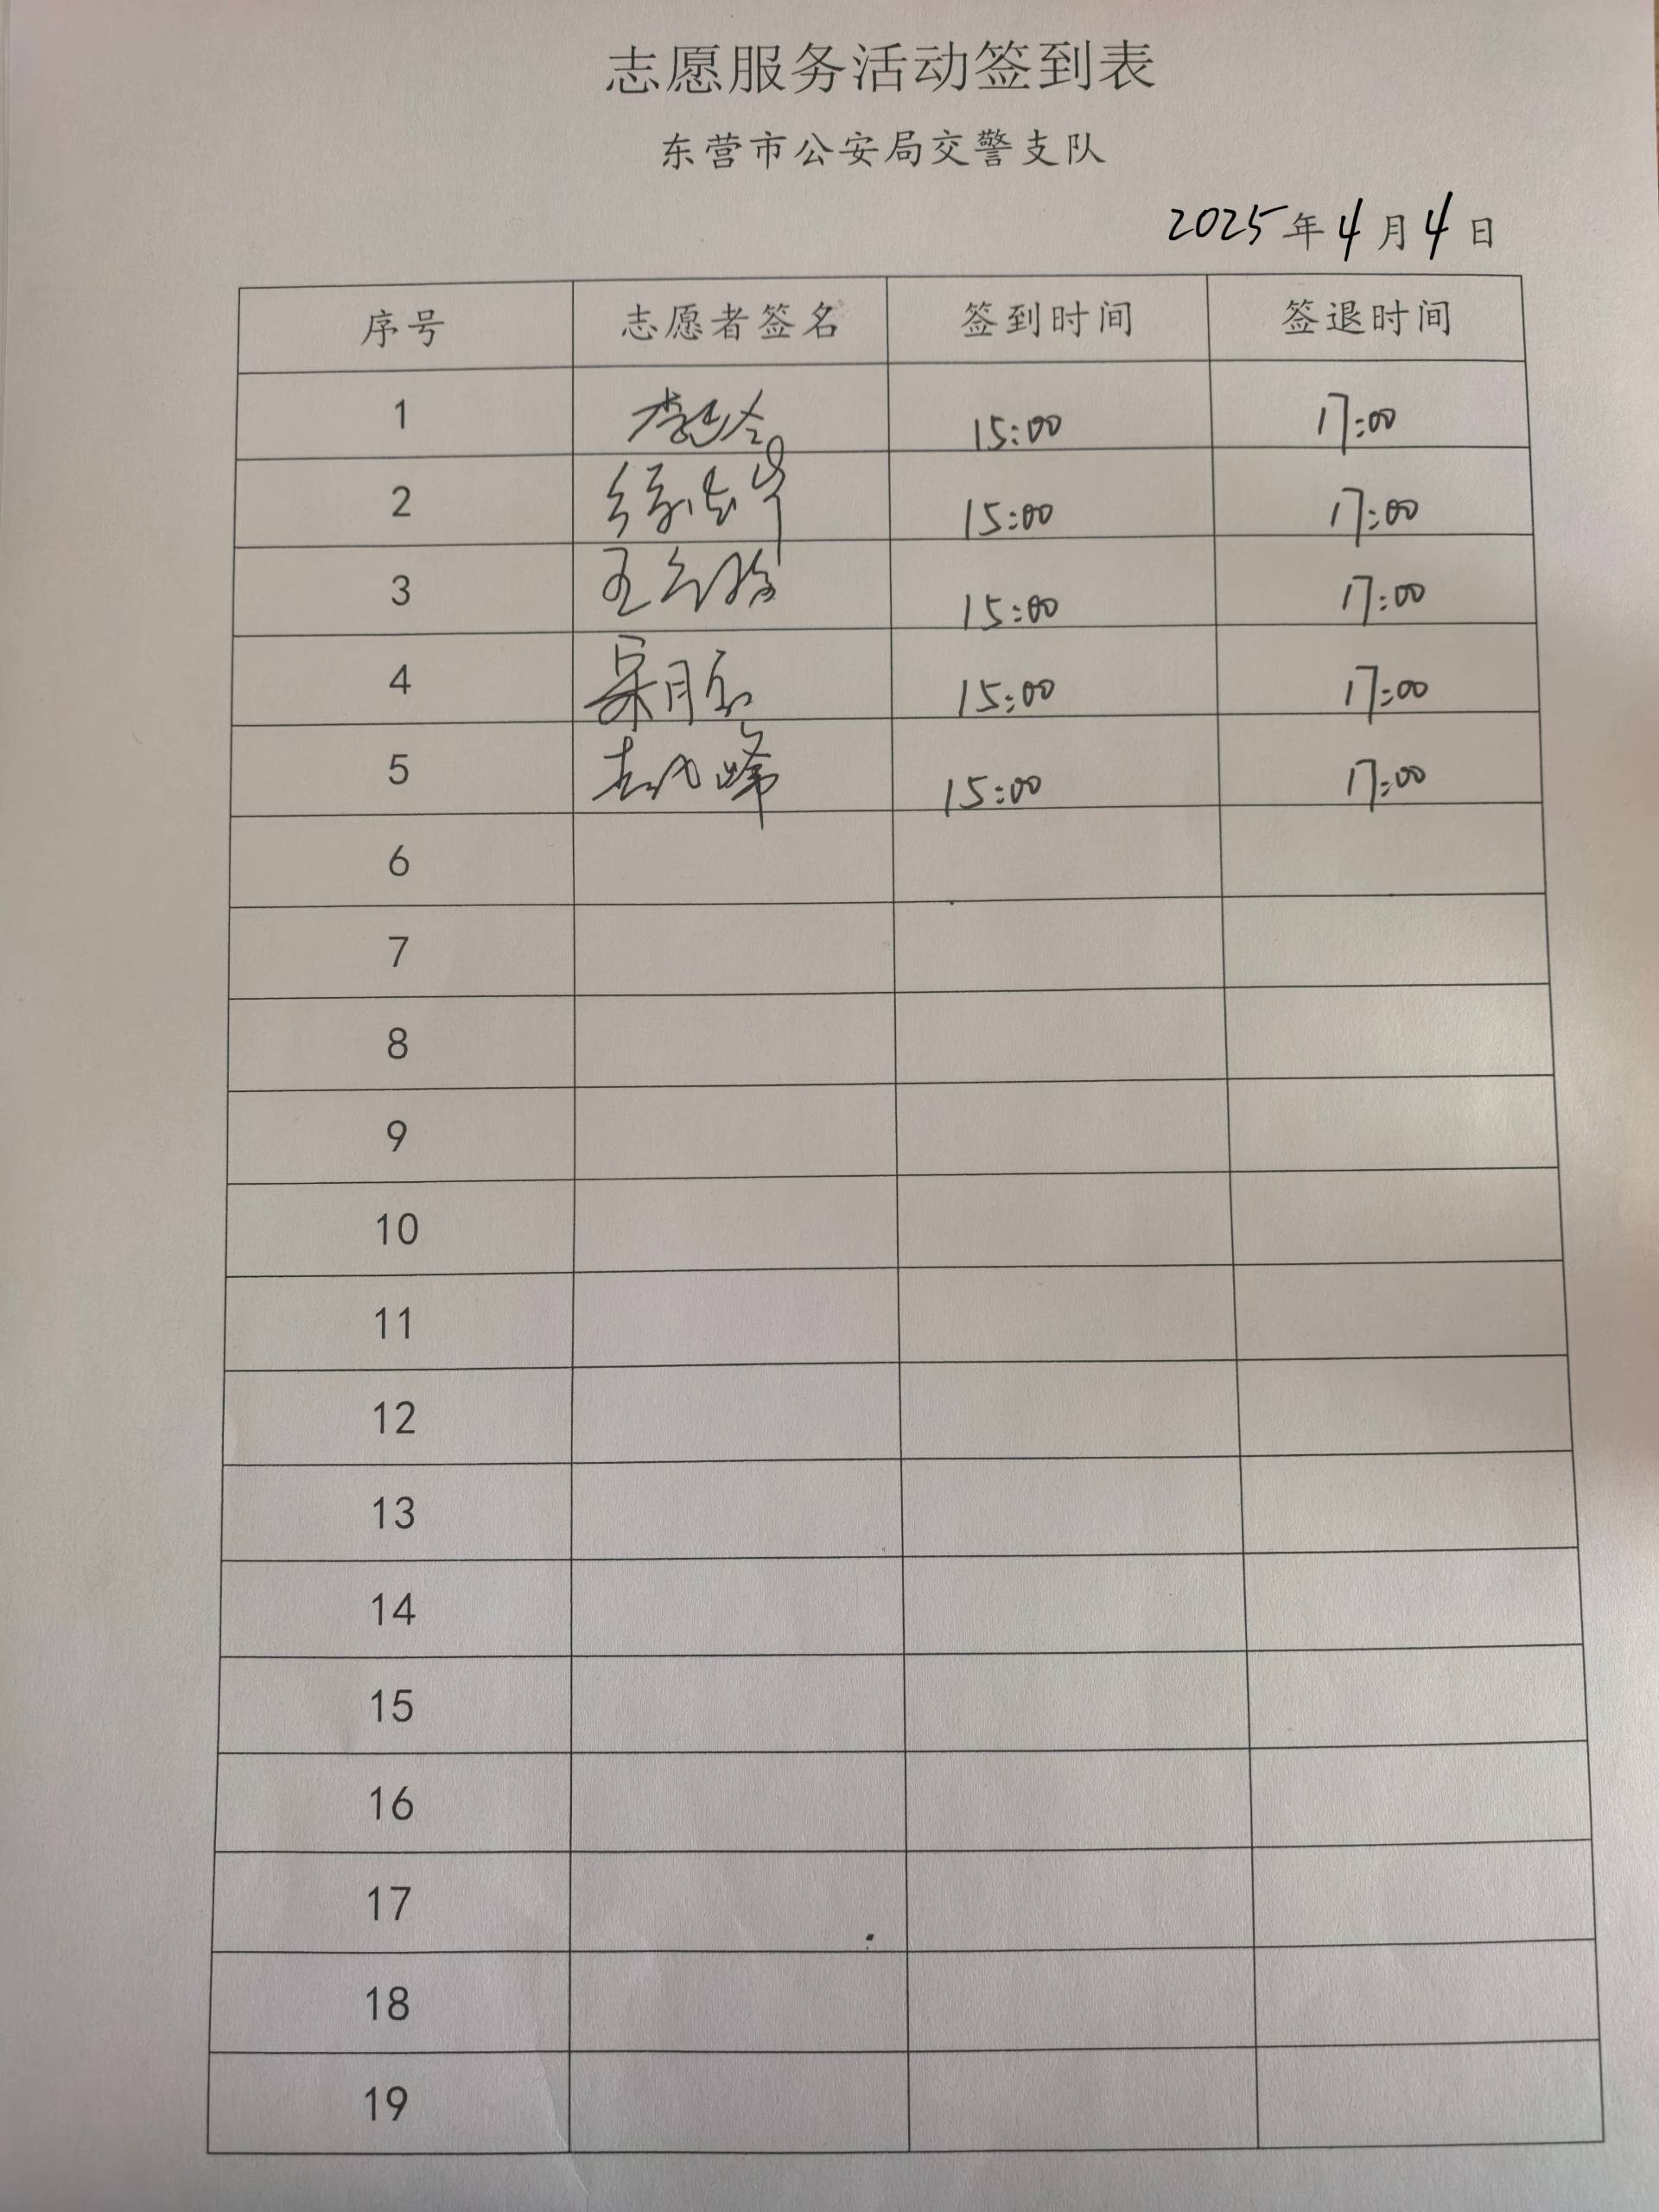 志愿服务活动签到表
东营市公安局交警支队
2025年4月4日
序号 志愿者签名 签到时间 签退时间
1 15:00 17:00
2 15:00 17:00
3 王 15:00 17:00
4 15:00 17:00
5 峰 15:00 17:00
6
7
8
9
10
11
12
13
14
15
16
17
18
19